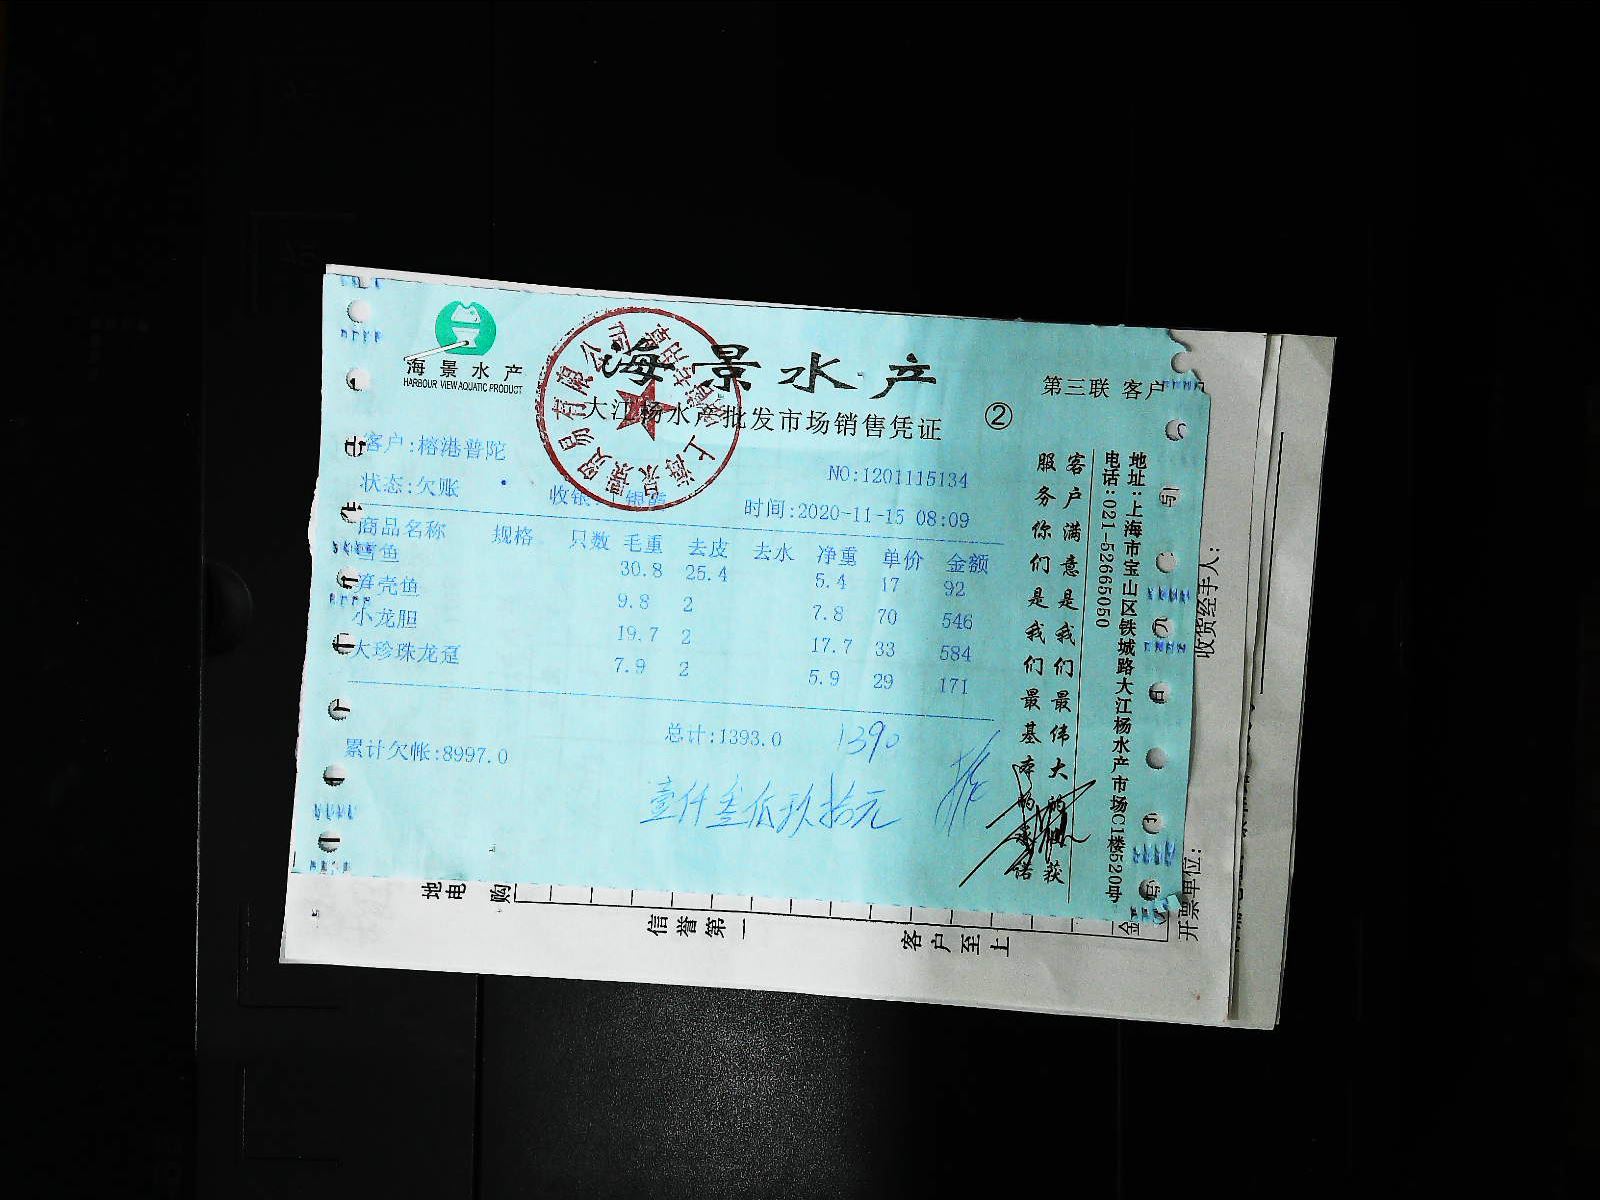 海景水产
HARBOUR VIEW AQUATIC PRODUCT
海景水产
第三联 客户
大江杨水产批发市场销售凭证 ②
客户:榕港普陀
NO:1201115134
状态:欠账
收银:
时间:2020-11-15 08:09
商品名称 规格 只数 毛重 去皮 去水 净重 单价 金额
雪鱼 30.8 25.4 5.4 17 92
笋壳鱼 9.8 2 7.8 70 546
小龙胆 19.7 2 17.7 33 584
大珍珠龙趸 7.9 2 5.9 29 171
总计:1393.0 1390
累计欠帐:8997.0
壹仟叁佰玖拾元
客户满意是我们最伟大的收获
服务你们是我们最基本的承诺
地址:上海市宝山区铁城路大江杨水产市场C1楼520号
电话:021-52665050
收货经手人:
开票单位:
地
电
购
金
信誉第一
客户至上